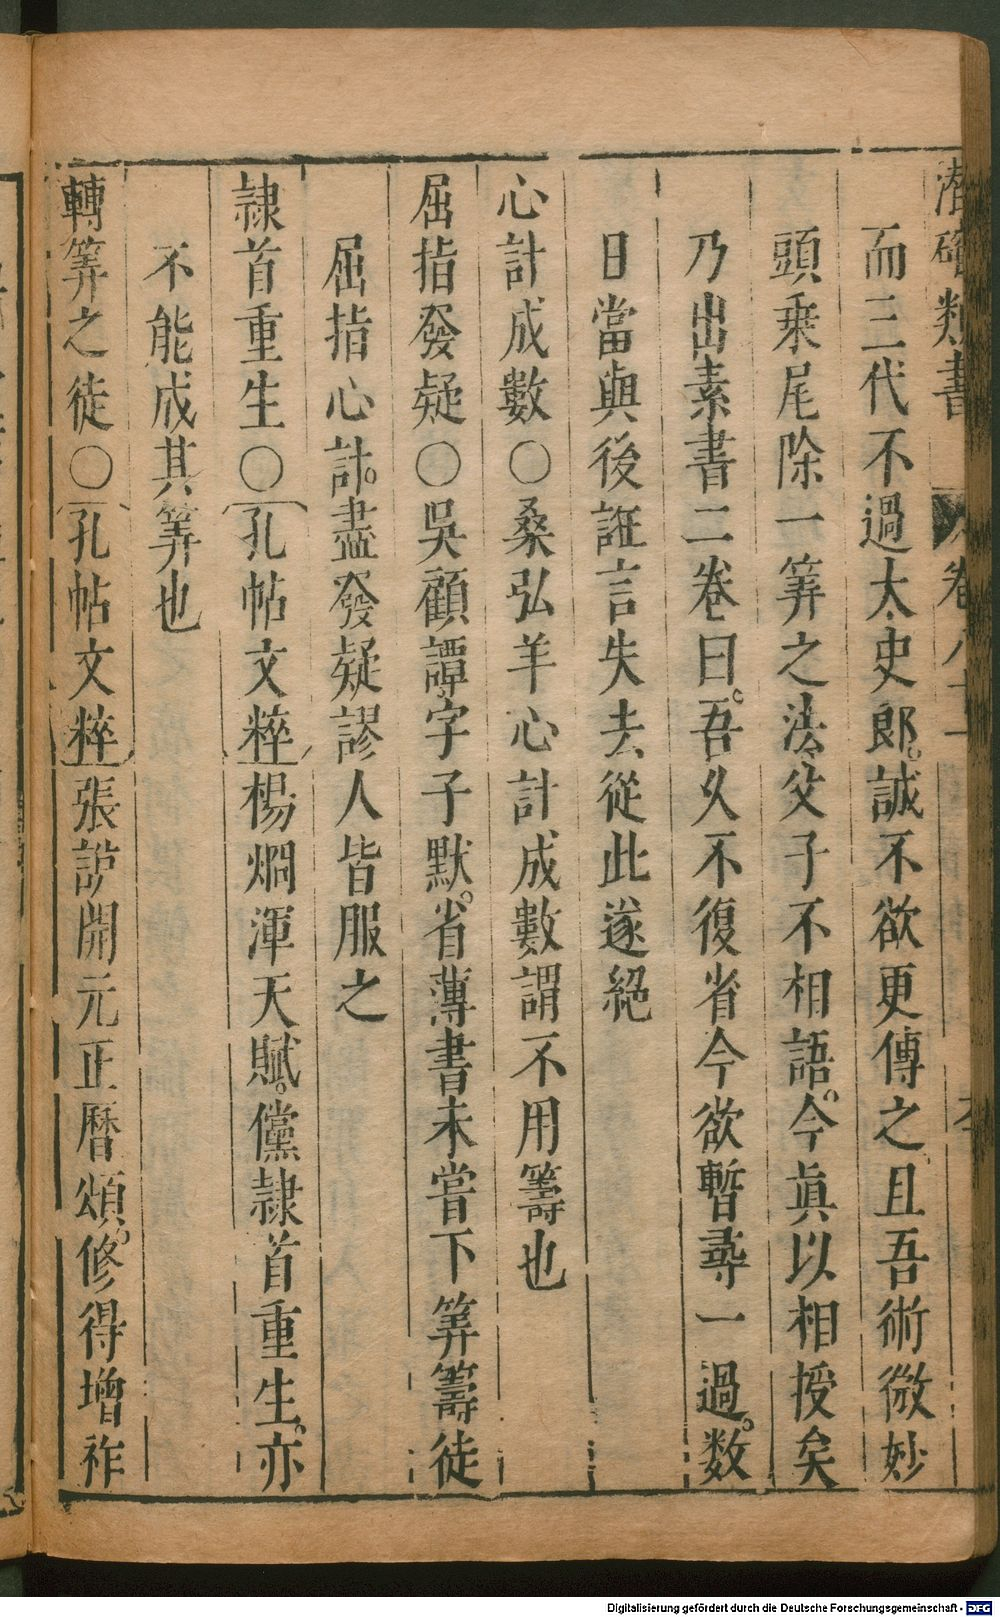 潛確類書 卷八十
而三代不過太史郎誠不欲更傳之且吾術微妙
頭乗尾除一筭之法父子不相語今眞以相授矣
乃出素書二卷曰吾久不復省今欲暫尋一過数
日當與後誑言失去從此遂絕
心計成數〇桑弘羊心計成數謂不用籌也
屈指發疑〇吳顧譚字子默省薄書未嘗下筭籌徒
屈指心計盡發疑謬人皆服之
隷首重生〇孔帖文粹楊烱渾天賦儻隷首重生亦
不能成其筭也
轉筭之徒〇孔帖文粹張說開元正曆頌修得增祚
Digitalisierung gefördert durch die Deutsche Forschungsgemeinschaft - DFG